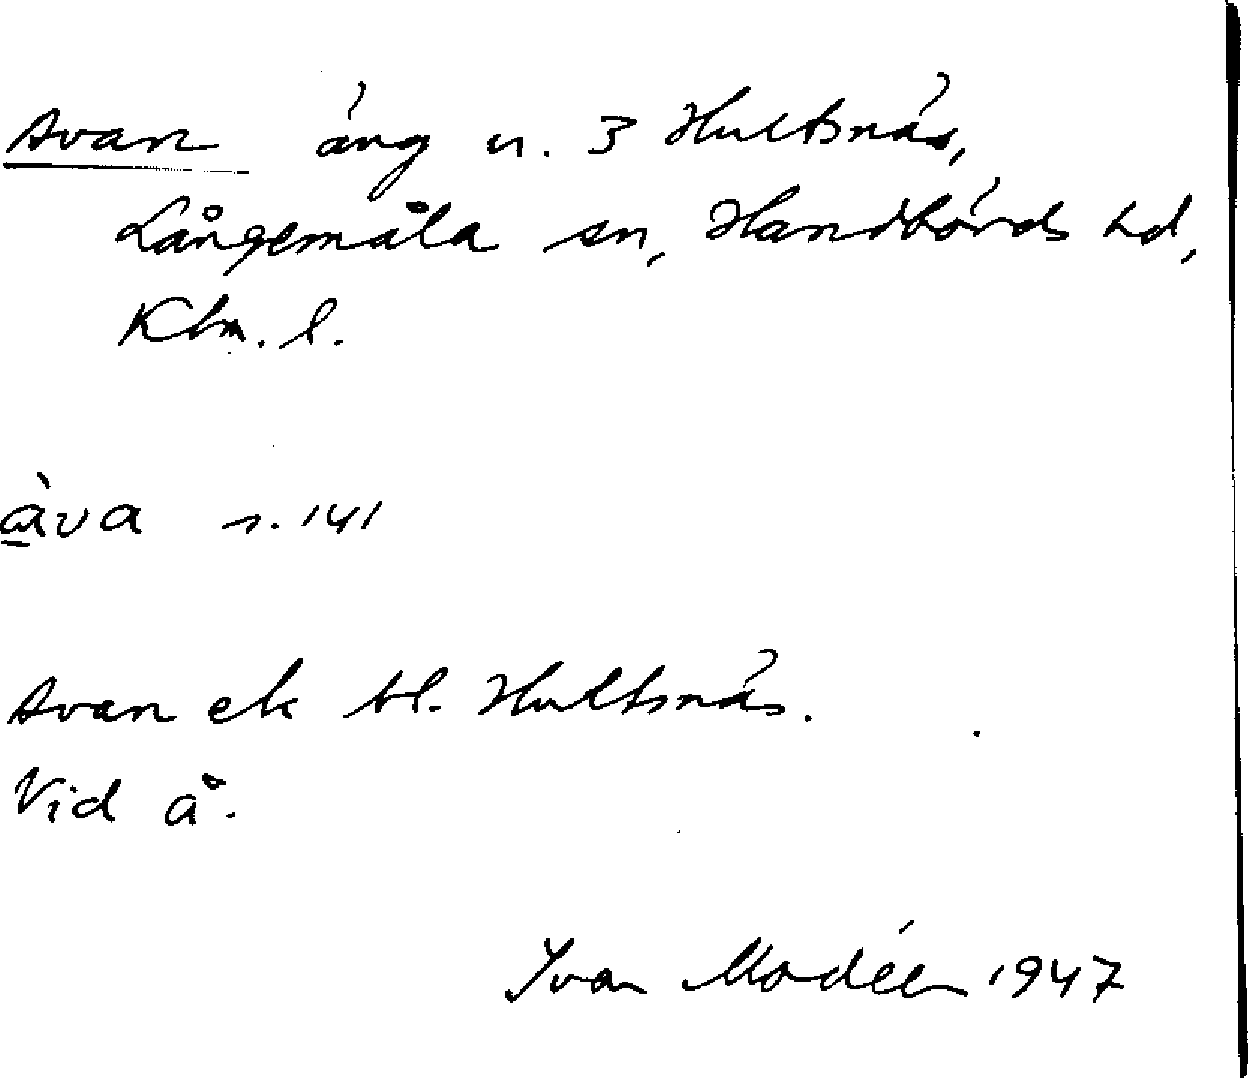 Avan äng n. 3 Hultsnäs,
Långemåla sn, Handbörds hd,
Klm. l.
àva s. 141
Avan ek bl. Hultsnäs.
Vid å.
Ivar Modéer 1947